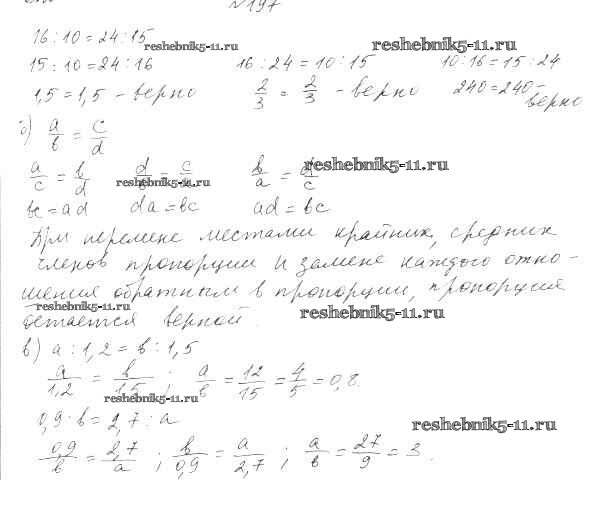 №197
16 : 10 = 24 : 15
reshebnik5-11.ru reshebnik5-11.ru
15 : 10 = 24 : 16 16 : 24 = 10 : 15 10 : 16 = 15 : 24
1,5 = 1,5 - верно 2/3 = 2/3 - верно 240 = 240 - верно
б) a/b = c/d
a/c = b/d d/b = c/a b/a = d/c
reshebnik5-11.ru reshebnik5-11.ru
bc = ad da = bc ad = bc
При перемене местами крайних, средних
членов пропорции и замене каждого отно-
шения обратным в пропорции, пропорция
reshebnik5-11.ru reshebnik5-11.ru
остается верной.
в) a : 1,2 = b : 1,5
a/1,2 = b/1,5 ; a/b = 12/15 = 4/5 = 0,8.
reshebnik5-11.ru
0,9 : b = 2,7 : a
reshebnik5-11.ru
0,9/b = 2,7/a ; b/0,9 = a/2,7 ; a/b = 27/9 = 3.